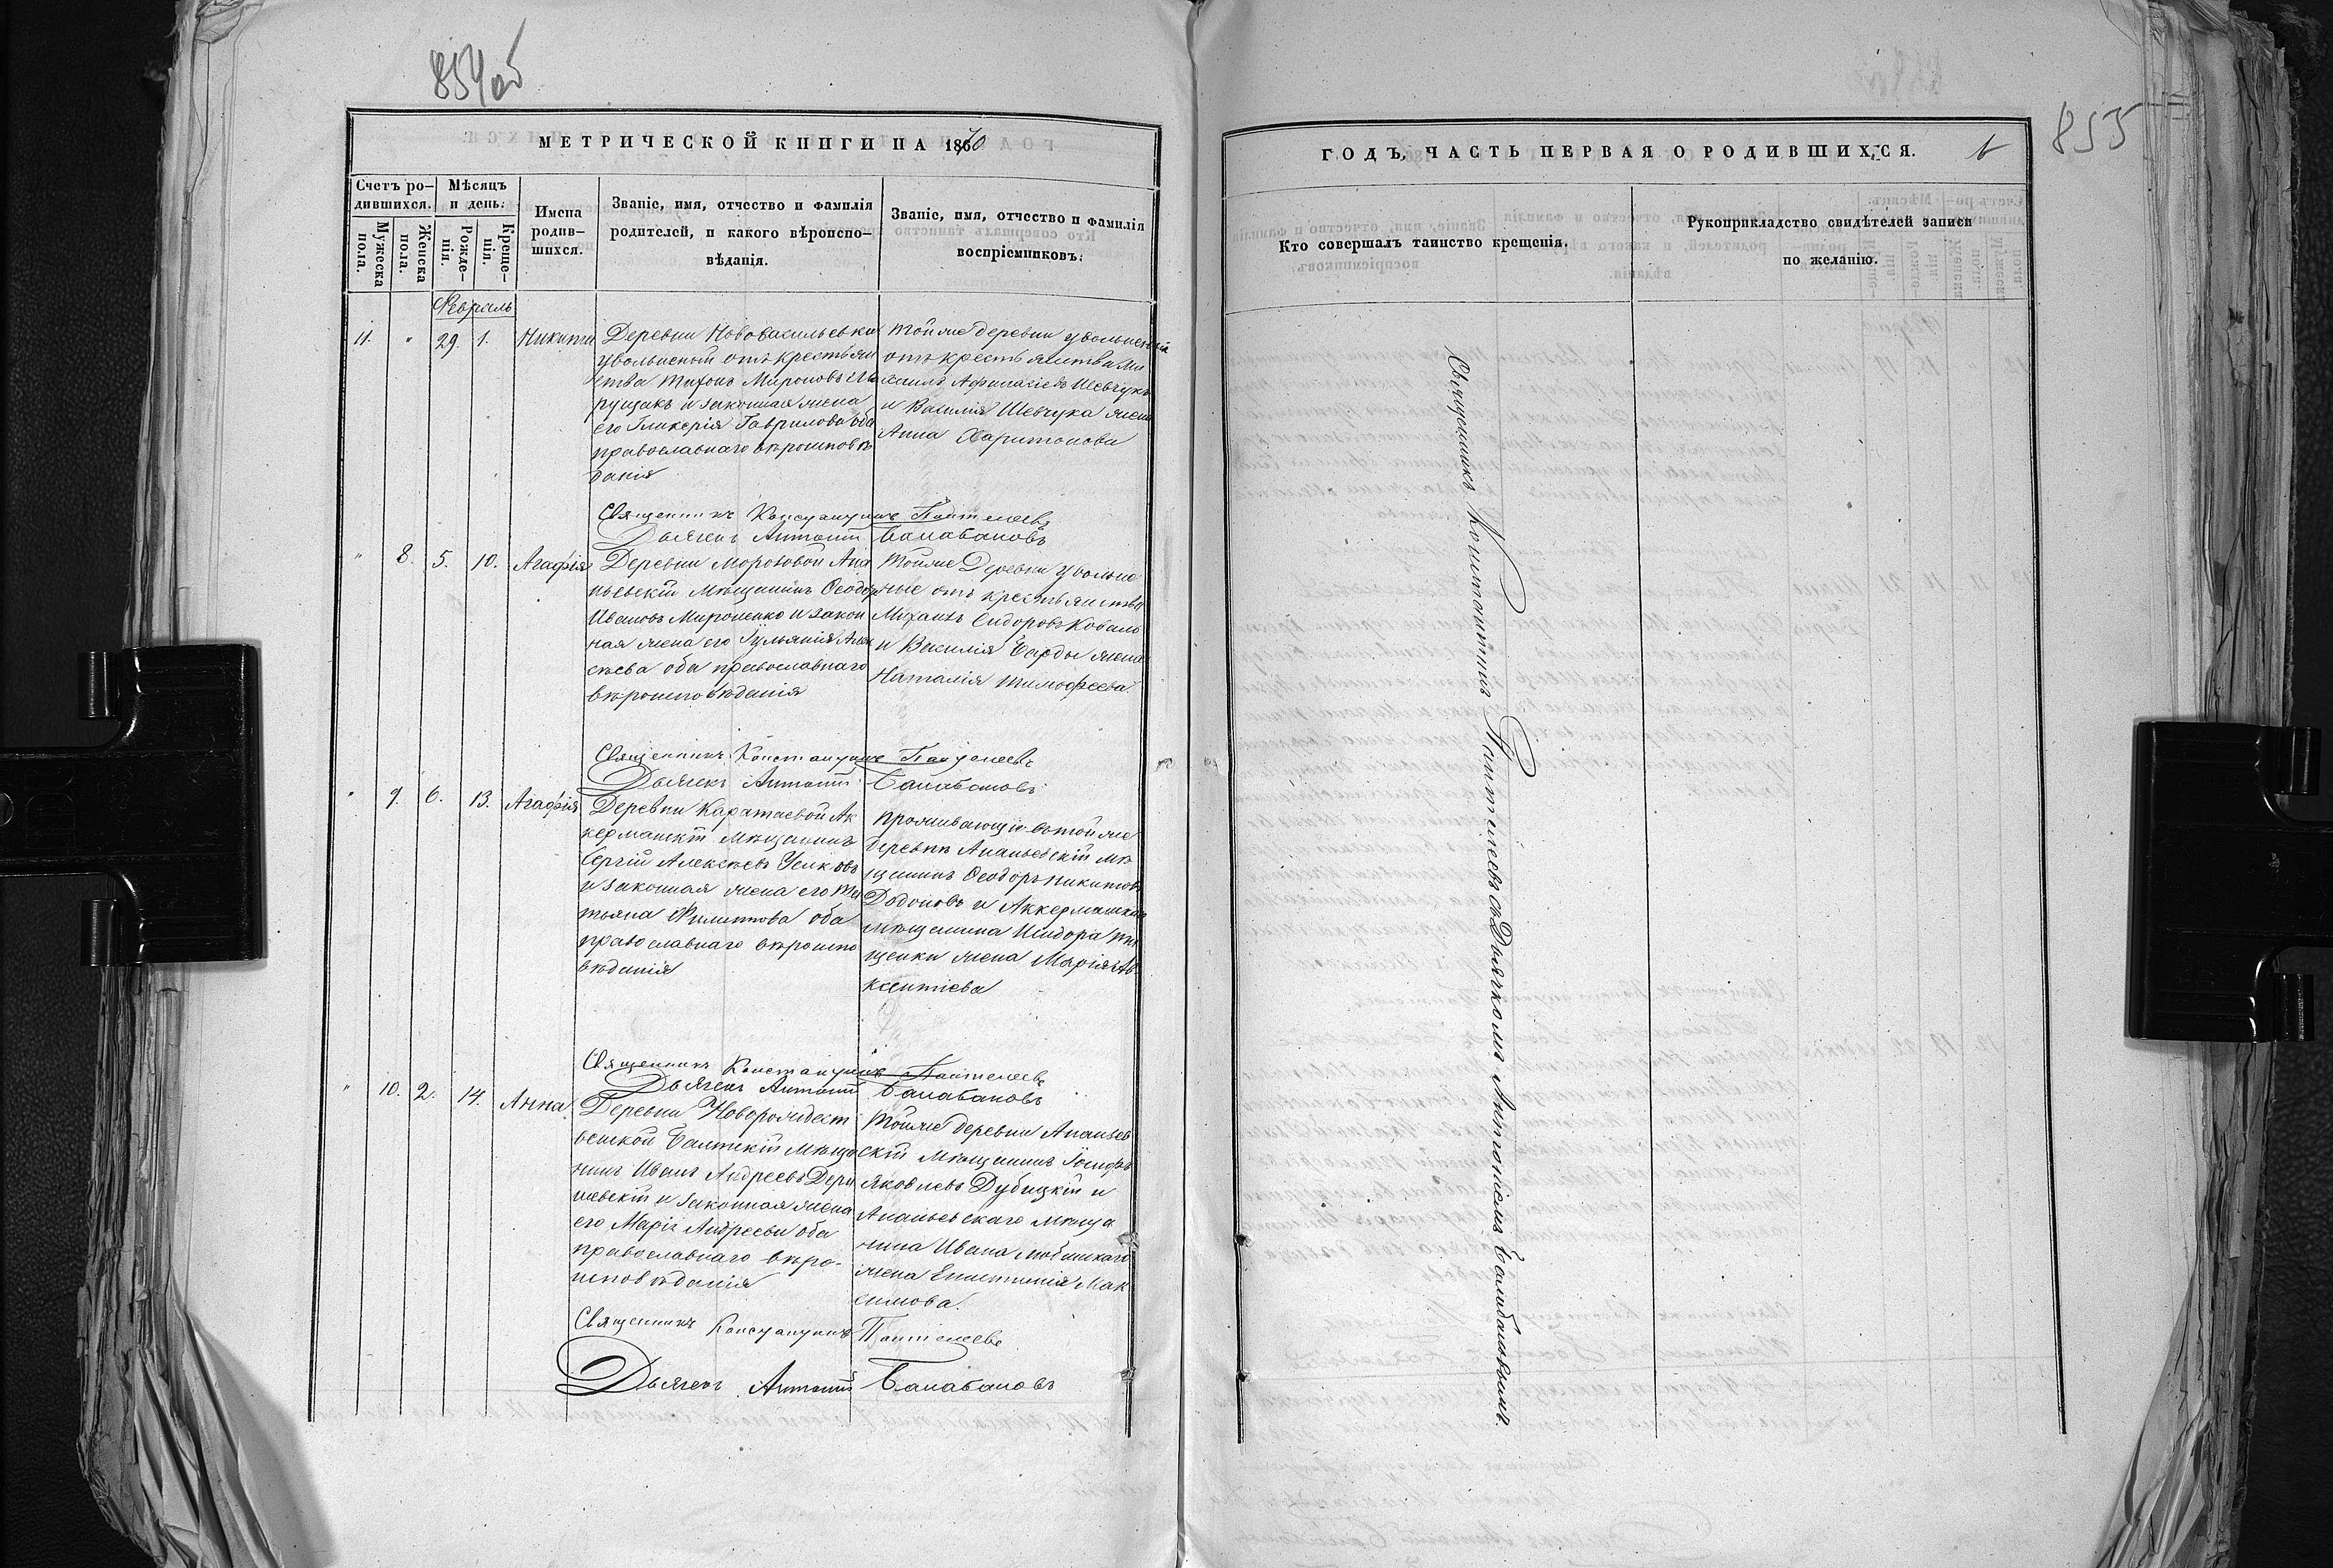 854об
МЕТРИЧЕСКОЙ КНИГИ НА 1870
Счетъ ро-
дившихся.
Мужеска
пола.
Женска
пола.
Мѣсяцъ
и день.
Рожде-
нія.
Креще-
нія.
Имена
родив-
шихся.
Званіе, имя, отчество и фамилія
родителей, и какого вѣроиспо-
вѣданія.
Званіе, имя, отчество и фамилія
воспріемниковъ.
Февраль
11. " 29. 1. Никита
Деревни Нововасильевки
уволненый отъ крестьян
ства Тихонъ Мироновъ
и законная жена
его Гликерія Гаврилова оба
православнаго вѣроисповѣ
данія
Тойже деревни уволненый
отъ крестьянства Ми
хаилъ Афанасіевъ Шевчукъ
и Василія Шевчука жена
Анна Харитонова
Священникъ Константинъ Пантелеевъ
Дьячекъ Антоній Балабановъ
" 8. 5. 10. Агафія
Деревни Морозовой Ана
ньевскій Мѣщанинъ Ѳеодоръ
Ивановъ Мироненко и закон
ная жена его Іульянія Алек
сѣева оба православнаго
вѣроисповѣданія
Тойже Деревни уволне
ные отъ крестьянства
Михаилъ Сидоровъ Ковале
и Василія жена
Наталія Тимофеева.
Священникъ Константинъ Пантелеевъ
Дьячекъ Антоній Балабановъ
" 9. 6. 13. Агафія
Деревни Каратаевой Ак
керманскій Мѣщанинъ
Сергій Алексѣевъ Усиковъ
и законная жена его Та
тьяна Филиппова оба
православнаго вѣроиспо
вѣданія
Проживающіе вътойже
деревни Ананьевскій мѣ
щанинъ Ѳеодоръ Никитовъ
Додоновъ и Аккерманскаго
мѣщанина Исидора
жена Марія Ав
ксентіева
Священникъ Константинъ Пантелеевъ
Дьячекъ Антоній Балабановъ
" 10. 2. 14. Анна
Деревни Новорождест
венской Балтскій Мѣща
нинъ Иванъ Андреевъ Дери
шевскій и законная жена
его Марія Андреева оба
православнаго вѣро-
исповѣданія
Тойже деревни Ананьев
скій Мѣщанинъ Іосифъ
Яковлевъ Дубицкій и
Ананьевскаго Мѣща
нина Ивана
жена Епистинія Мак
симова.
Священникъ Константинъ Пантелеевъ
Дьячекъ Антоній Балабановъ
ГОДЪ, ЧАСТЬ ПЕРВАЯ О РОДИВШИХСЯ.
855
Кто совершалъ таинство крещенія.
Рукоприкладство свидѣтелей записи
по желанію.
Священникъ Константинъ Пантелеевъ съ Дьячкомъ Антоніемъ Балабановымъ.